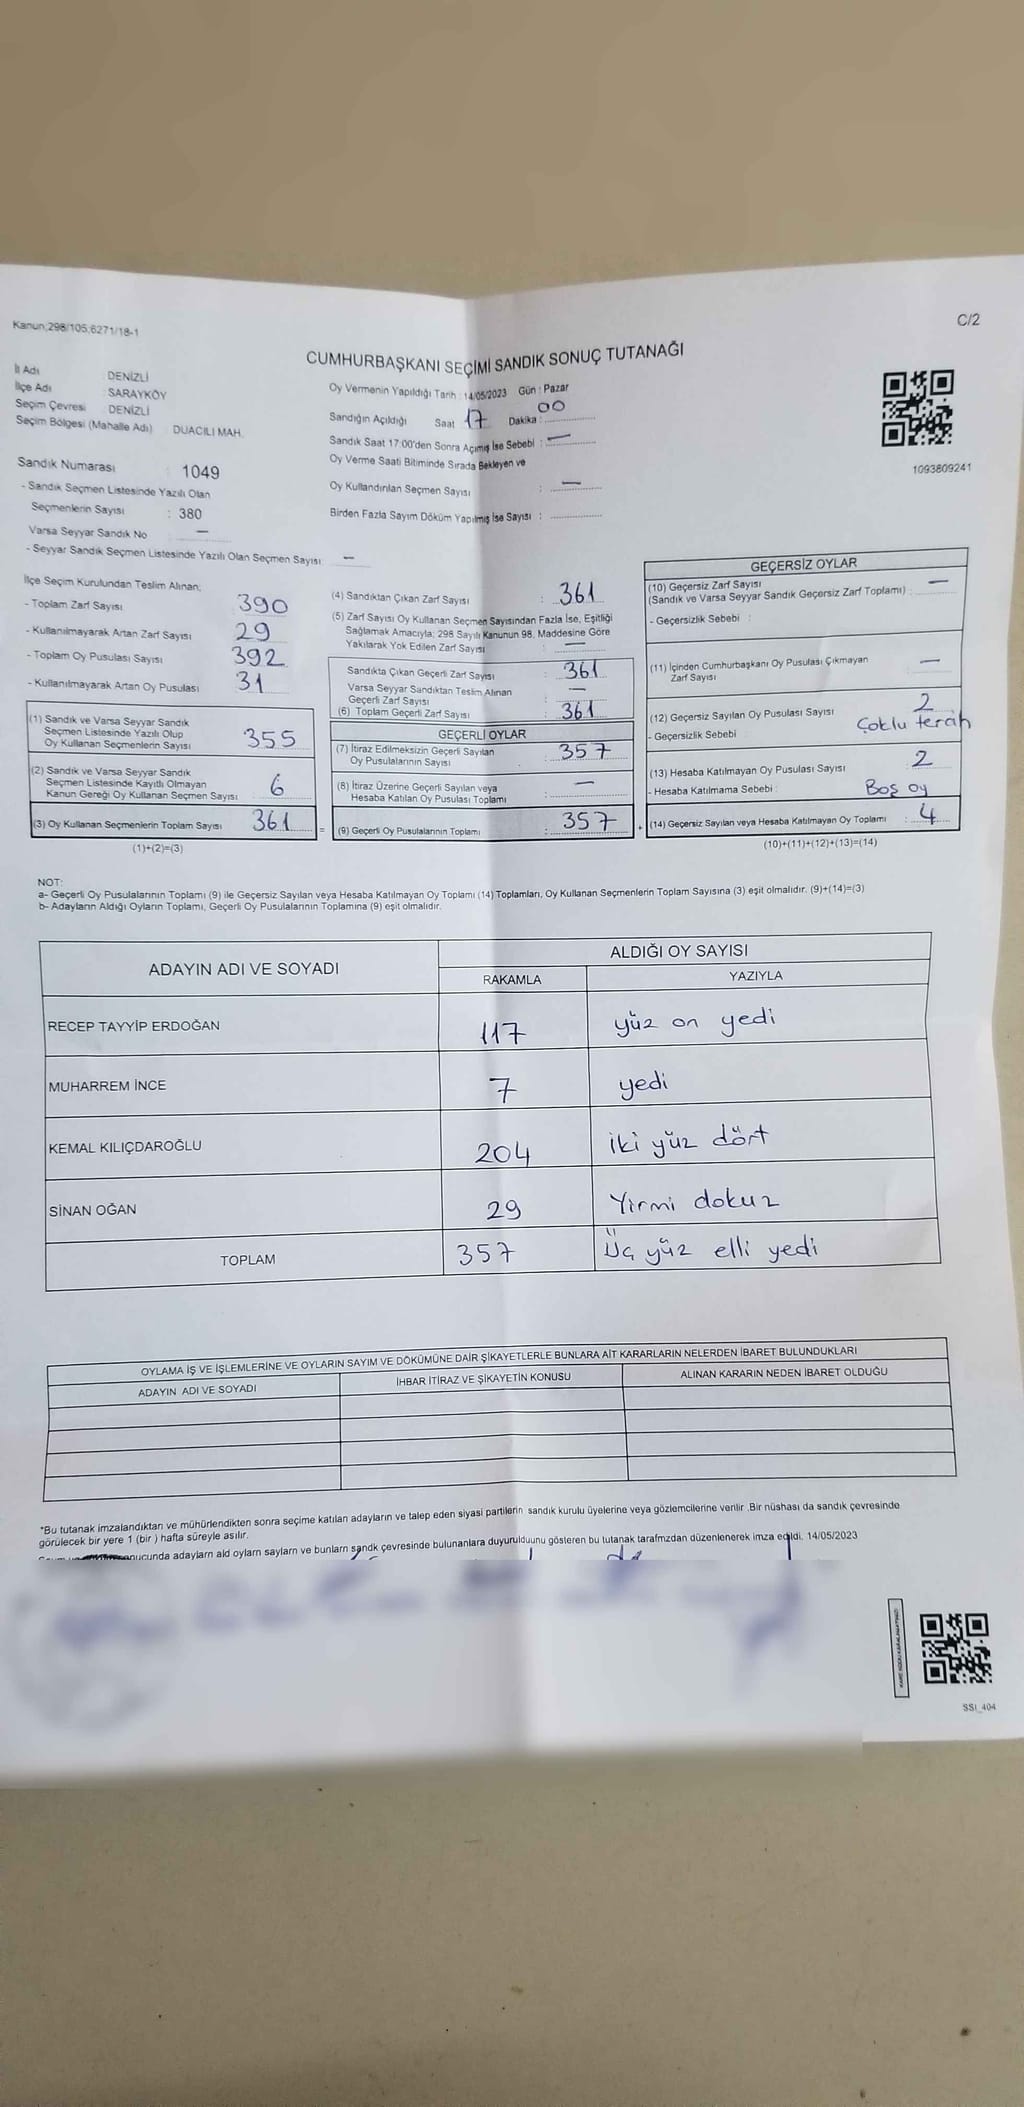 Kanun;298/105;6271/18-1
C/2
CUMHURBAŞKANI SEÇİMİ SANDIK SONUÇ TUTANAĞI
İl Adı DENİZLİ
İlçe Adı SARAYKÖY
Seçim Çevresi DENİZLİ
Seçim Bölgesi (Mahalle Adı) DUACILI MAH.
Sandık Numarası : 1049
- Sandık Seçmen Listesinde Yazılı Olan
Seçmenlerin Sayısı : 380
Varsa Seyyar Sandık No —
- Seyyar Sandık Seçmen Listesinde Yazılı Olan Seçmen Sayısı : —
Oy Vermenin Yapıldığı Tarih : 14/05/2023 Gün : Pazar
Sandığın Açıldığı Saat 17 Dakika : 00
Sandık Saat 17:00'den Sonra Açımış İse Sebebi : —
Oy Verme Saati Bitiminde Sırada Bekleyen ve
Oy Kullandırılan Seçmen Sayısı : —
Birden Fazla Sayım Döküm Yapılmış İse Sayısı :
1093809241
İlçe Seçim Kurulundan Teslim Alınan;
- Toplam Zarf Sayısı 390
- Kullanılmayarak Artan Zarf Sayısı 29
- Toplam Oy Pusulası Sayısı 392
- Kullanılmayarak Artan Oy Pusulası 31
(1) Sandık ve Varsa Seyyar Sandık
Seçmen Listesinde Yazılı Olup
Oy Kullanan Seçmenlerin Sayısı 355
(2) Sandık ve Varsa Seyyar Sandık
Seçmen Listesinde Kayıtlı Olmayan
Kanun Gereği Oy Kullanan Seçmen Sayısı : 6
(3) Oy Kullanan Seçmenlerin Toplam Sayısı 361
(1)+(2)=(3)
(4) Sandıktan Çıkan Zarf Sayısı : 361
(5) Zarf Sayısı Oy Kullanan Seçmen Sayısından Fazla İse, Eşitliği
Sağlamak Amacıyla; 298 Sayılı Kanunun 98. Maddesine Göre
Yakılarak Yok Edilen Zarf Sayısı : —
Sandıkta Çıkan Geçerli Zarf Sayısı : 361
Varsa Seyyar Sandıktan Teslim Alınan
Geçerli Zarf Sayısı : —
(6) Toplam Geçerli Zarf Sayısı : 361
GEÇERLİ OYLAR
(7) İtiraz Edilmeksizin Geçerli Sayılan
Oy Pusulalarının Sayısı : 357
(8) İtiraz Üzerine Geçerli Sayılan veya
Hesaba Katılan Oy Pusulası Toplamı : —
= (9) Geçerli Oy Pusulalarının Toplamı : 357 +
GEÇERSİZ OYLAR
(10) Geçersiz Zarf Sayısı
(Sandık ve Varsa Seyyar Sandık Geçersiz Zarf Toplamı) : —
- Geçersizlik Sebebi :
(11) İçinden Cumhurbaşkanı Oy Pusulası Çıkmayan
Zarf Sayısı —
(12) Geçersiz Sayılan Oy Pusulası Sayısı 2
- Geçersizlik Sebebi Çoklu tercih
(13) Hesaba Katılmayan Oy Pusulası Sayısı 2
- Hesaba Katılmama Sebebi : Boş oy
(14) Geçersiz Sayılan veya Hesaba Katılmayan Oy Toplamı : 4
(10)+(11)+(12)+(13)=(14)
NOT:
a- Geçerli Oy Pusulalarının Toplamı (9) ile Geçersiz Sayılan veya Hesaba Katılmayan Oy Toplamı (14) Toplamları, Oy Kullanan Seçmenlerin Toplam Sayısına (3) eşit olmalıdır. (9)+(14)=(3)
b- Adayların Aldığı Oyların Toplamı, Geçerli Oy Pusulalarının Toplamına (9) eşit olmalıdır.
ADAYIN ADI VE SOYADI
ALDIĞI OY SAYISI
RAKAMLA YAZIYLA
RECEP TAYYİP ERDOĞAN 117 yüz on yedi
MUHARREM İNCE 7 yedi
KEMAL KILIÇDAROĞLU 204 iki yüz dört
SİNAN OĞAN 29 Yirmi dokuz
TOPLAM 357 Üç yüz elli yedi
OYLAMA İŞ VE İŞLEMLERİNE VE OYLARIN SAYIM VE DÖKÜMÜNE DAİR ŞİKAYETLERLE BUNLARA AİT KARARLARIN NELERDEN İBARET BULUNDUKLARI
ADAYIN ADI VE SOYADI İHBAR İTİRAZ VE ŞİKAYETİN KONUSU ALINAN KARARIN NEDEN İBARET OLDUĞU
*Bu tutanak imzalandıktan ve mühürlendikten sonra seçime katılan adayların ve talep eden siyasi partilerin sandık kurulu üyelerine veya gözlemcilerine verilir .Bir nüshası da sandık çevresinde
görülecek bir yere 1 (bir ) hafta süreyle asılır.
adayların ald oyların sayların ve bunların sandk çevresinde bulunanlara duyurulduunu gösteren bu tutanak tarafmzdan düzenlenerek imza edildi. 14/05/2023
SSI_404